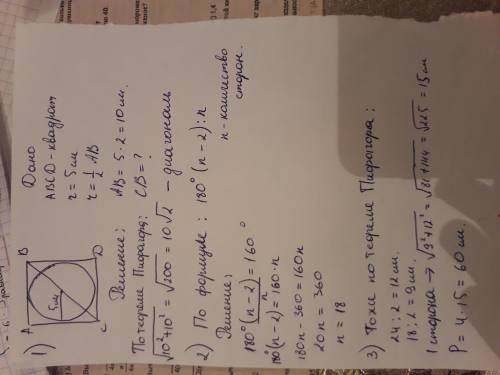 1)
A
B
C
D
5см
Дано
ABCD - квадрат
r = 5см
r = 1/2 AB
AB = 5·2 = 10см.
CB = ?
Решение:
По теореме Пифагора:
√10²+10² = √200 = 10√2 - диагональ
2) По формуле: 180° (n-2):n
n - количество
сторон.
Решение:
180°(n-2)/n = 160°
180°(n-2) = 160·n
180n - 360 = 160n
20n = 360
n = 18
3) Тоже по теореме Пифагора:
24:2 = 12см.
18:2 = 9см.
1 сторона → √9²+12² = √81+144 = √225 = 15см
P = 4·15 = 60см.